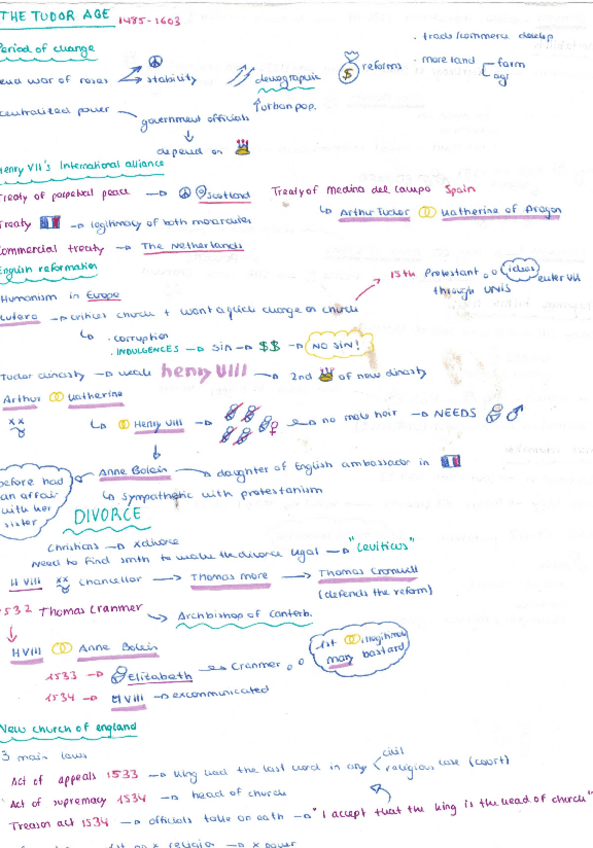 THE TUDOR AGE 1485-1603
Period of change
war of roses stability demographic reforms
. trade/commerce develop
. more land farm
agr
↑ urban pop.
centralized power government officials
depend on
Henry VII's International alliance
Treaty of perpetual peace → Scotland
Treaty of medina del campo Spain
Treaty → legitimacy of both monarchies
↳ Arthur Tudor Katherine of Aragon
Commercial treaty → The Netherlands
English reformation
Humanism in Europe
15th Protestant ideas enter UK
through UNIS
Lutero → critics church + want a quick change on church
↳ . corruption
. INDULGENCES → sin → $$ → NO SIN!
Tudor dinasty → weak henry VIII → 2nd of new dinasty
Arthur Katherine
xx
↳ Henry VIII → → no male heir → NEEDS ♂
Anne Bolein → daughter of English ambassador in
↳ sympathetic with protestantism
before had
an affair
with her
sister
DIVORCE
Christians → x divorce
need to find smth to make the divorce legal → "Leviticus"
H VIII xx chancellor → Thomas more → Thomas Cromwell
(defends the reform)
1532 Thomas Cranmer → Archbishop of Canterb.
HVIII Anne Bolein
1st illegitimate
mary bastard
1533 → Elizabeth Cranmer
1534 → HVIII → excommunicated
New church of england
3 main laws
civil
Act of appeals 1533 → King had the last word in any religious case (court)
Act of supremacy 1534 → head of church
Treason act 1534 → officials take an oath → "I accept that the king is the head of church"
religion → x power